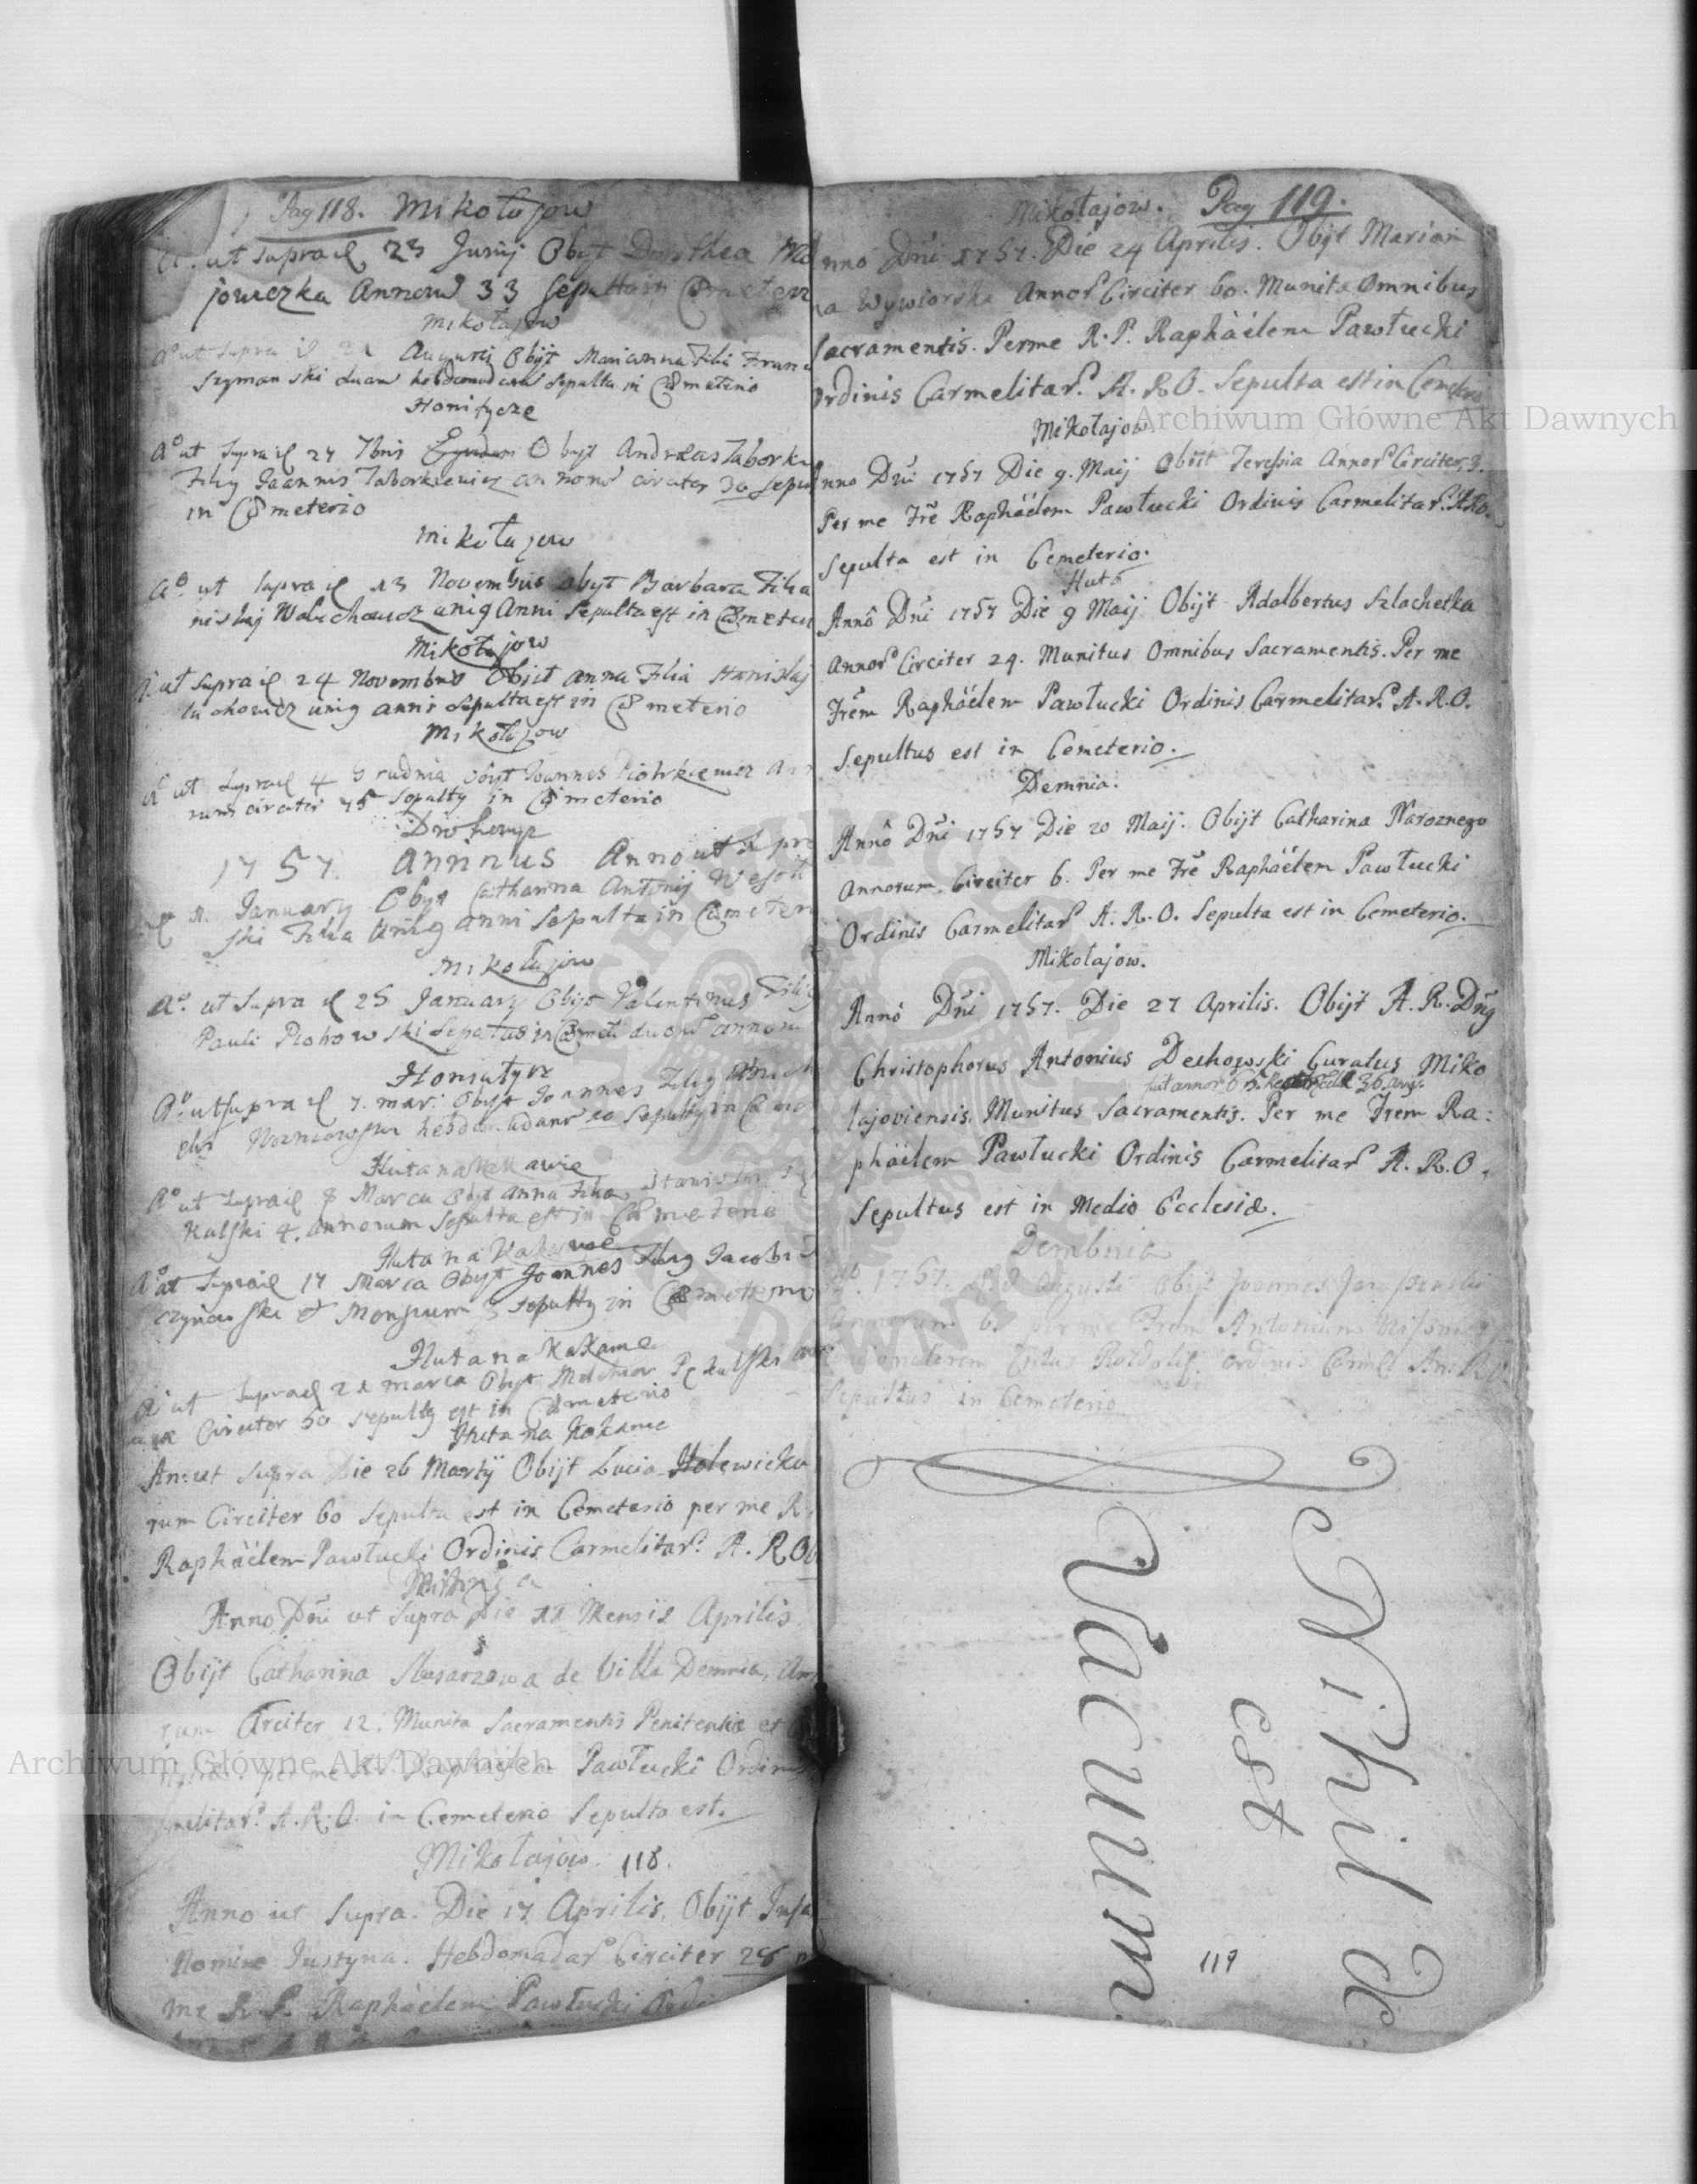 Pag 118. Mikołajow
A. ut supra d 23 Junij Obyt Dorothea
joweczka Annorū 33 sepulta in Cœmeter
Mikołajow
A° ut supra d 31 Augusti Obijt Marianna Filia Fran
Szymanski duarū hebdomadarū sepulta in Cœmeterio
Honitycze
A° ut supra d 27 7bris Obyt Andreas Taborkie
Filiꝯ Joannis Taborkiewicz annorū circiter 30 sepul
in Cœmeterio
Mikołajow
A°. ut supra d 13 Novembris obyt Barbara Filia
nislaj uniꝯ Anni Sepulta est in Cœmeter
Mikołajow
A. ut supra d 24 Novembris Obiit Anna Filia Stanislaj
uniꝯ anni sepulta est in Cœmeterio
Mikołajow
A° ut supra d 4 Grudnia obyt Joannes Piotrkiewicz An
rum circiter 75 sepultꝯ in Cœmeterio
1757. Annus Anno ut supra
d 1. January Obyt Catharina Antonij Wesoł
ski Filia uniꝯ anni Sepulta in Cœmeter
Mikołajow
A°. ut supra d 25 January Obyt Valentinus Filiꝯ
Pauli Piotrowski Sepultus in Cœmet duorū annorū
Honiatycze
A° ut supra d 7. mar: Obyt Joannes Filiꝯ
hebdomadarū 10 Sepultꝯ in Cœme
Huta na
A° ut supra d 8 Marca Obyt Anna Filia Stanislai
kulski 4. annorum Sepulta est in Cœmeterio
Huta na
A° ut supra d 17 Marca Obyt Joannes Filiꝯ Jacobi
Mensium 3 sepultꝯ in Cœmeterio
Huta na Kakame
A° ut supra d 21 marca Obyt Melchior
Circiter 50 sepultꝯ est in Cœmeterio
Huta na Kokame
An: ut supra Die 26 Martij Obijt Lucia Holewicka
rum Circiter 60 Sepulta est in Cemeterio per me R.
Raphäelem Pawłucki Ordinis Carmelitar. A. R O
Anno Dni ut Supra Die 11 Mensis Aprilis
Obijt Catharina Slusarzowa de Villa Demnia, An
rum Circiter 12. Munita Sacramentis Penitentiæ et
per me Raphäelem Pawłucki Ordinis
melitar. A. R. O. in Cemeterio Sepulta est.
Mikołajow. 118.
Anno ut Supra. Die 17 Aprilis. Obijt Infa
Nomine Justyna. Hebdomadar. Circiter 28 p
me R. P. Raphäelem Pawłucki Ordi
Mikołajow. Pag 119.
nno Dni 1757. Die 24 Aprilis. Obijt Marian
na Wywiorska Annor. Circiter 60. Munita Omnibus
Sacramentis. Per me R. P. Raphäelem Pawłucki
Ordinis Carmelitar. A. R O. Sepulta est in Cemeterio
Mikołajow.
Anno Dni 1757 Die 9. Maij Obijt Teressia Annor. Circiter 3.
Per me Frē Raphäelem Pawłucki Ordinis Carmelitar. A R O.
Sepulta est in Cemeterio.
Huta
Anno Dni 1757 Die 9 Maij Obijt Adalbertus Szlachetka
Annor. Circiter 24. Munitus Omnibus Sacramentis. Per me
Frēm Raphäelem Pawłucki Ordinis Carmelitar. A. R. O.
Sepultus est in Cemeterio.
Demnia.
Anno Dni 1757 Die 20 Maij. Obijt Catharina Naroznego
Annorum Circiter 6. Per me Frē Raphäelem Pawłucki
Ordinis Carmelitar. A. R. O. Sepulta est in Cemeterio.
Mikołajow.
Anno Dni 1757. Die 27 Aprilis. Obijt A. R. Dnꝯ
Christophorus Antonius Dechowski Curatus Miko
łajoviensis. Munitus Sacramentis. Per me Frem Ra:
phäelem Pawłucki Ordinis Carmelitar. A. R. O.
Sepultus est in Medio Ecclesiæ.
Dembnia
A°. 1757. Augusti Obijt Joannes
Annorum 6. per me Frem Antonium
Ordinis Carmel An: R O.
Sepultus in Cemeterio
Nihil de
est
Vacuum
119
Archiwum Główne Akt Dawnych
Archiwum Główne Akt Dawnych